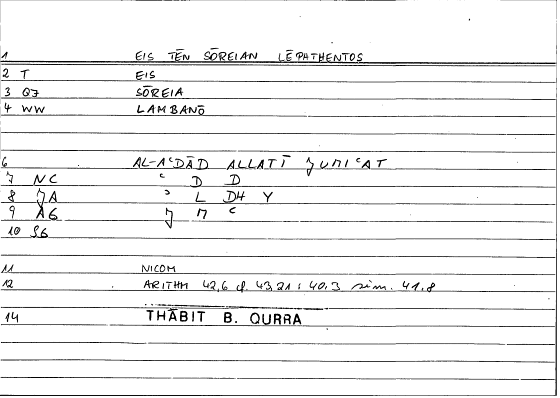 1 EIS TĒN SŌREIAN LĒPHTHENTOS
2 T EIS
3 Q7 SŌREIA
4 WW LAMBANŌ
6 AL-AʿDĀD ALLATĪ
7 NC ʿ D D
8 L D4 Y
9 A6
10
11 NICOM
12 ARITHM 42,6 cf. 43,21 : 40,3 sim. 41,8
14 THĀBIT B. QURRA